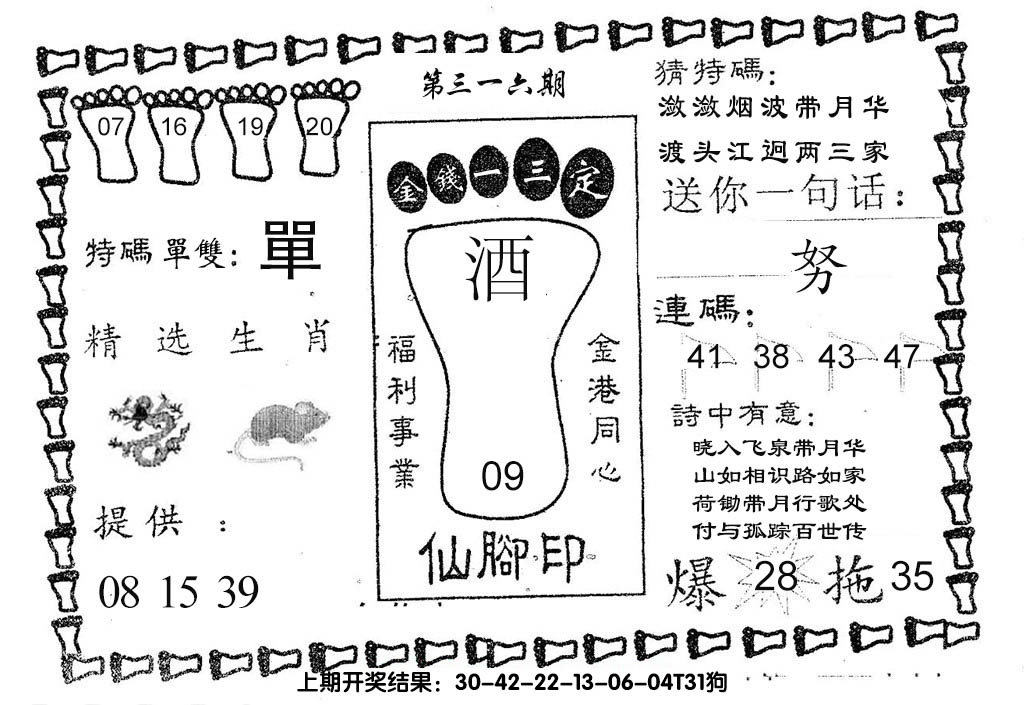 第三一六期
07 16 19 20
特碼單雙：單
精选生肖
提供：
08 15 39
金錢一三定
酒
福利事業
金港同心
09
仙腳印
猜特碼：
潋潋烟波带月华
渡头江迥两三家
送你一句话：
努
連碼：
41 38 43 47
詩中有意：
晓入飞泉带月华
山如相识路如家
荷锄带月行歌处
付与孤踪百世传
爆 28 拖 35
上期开奖结果：30-42-22-13-06-04T31狗